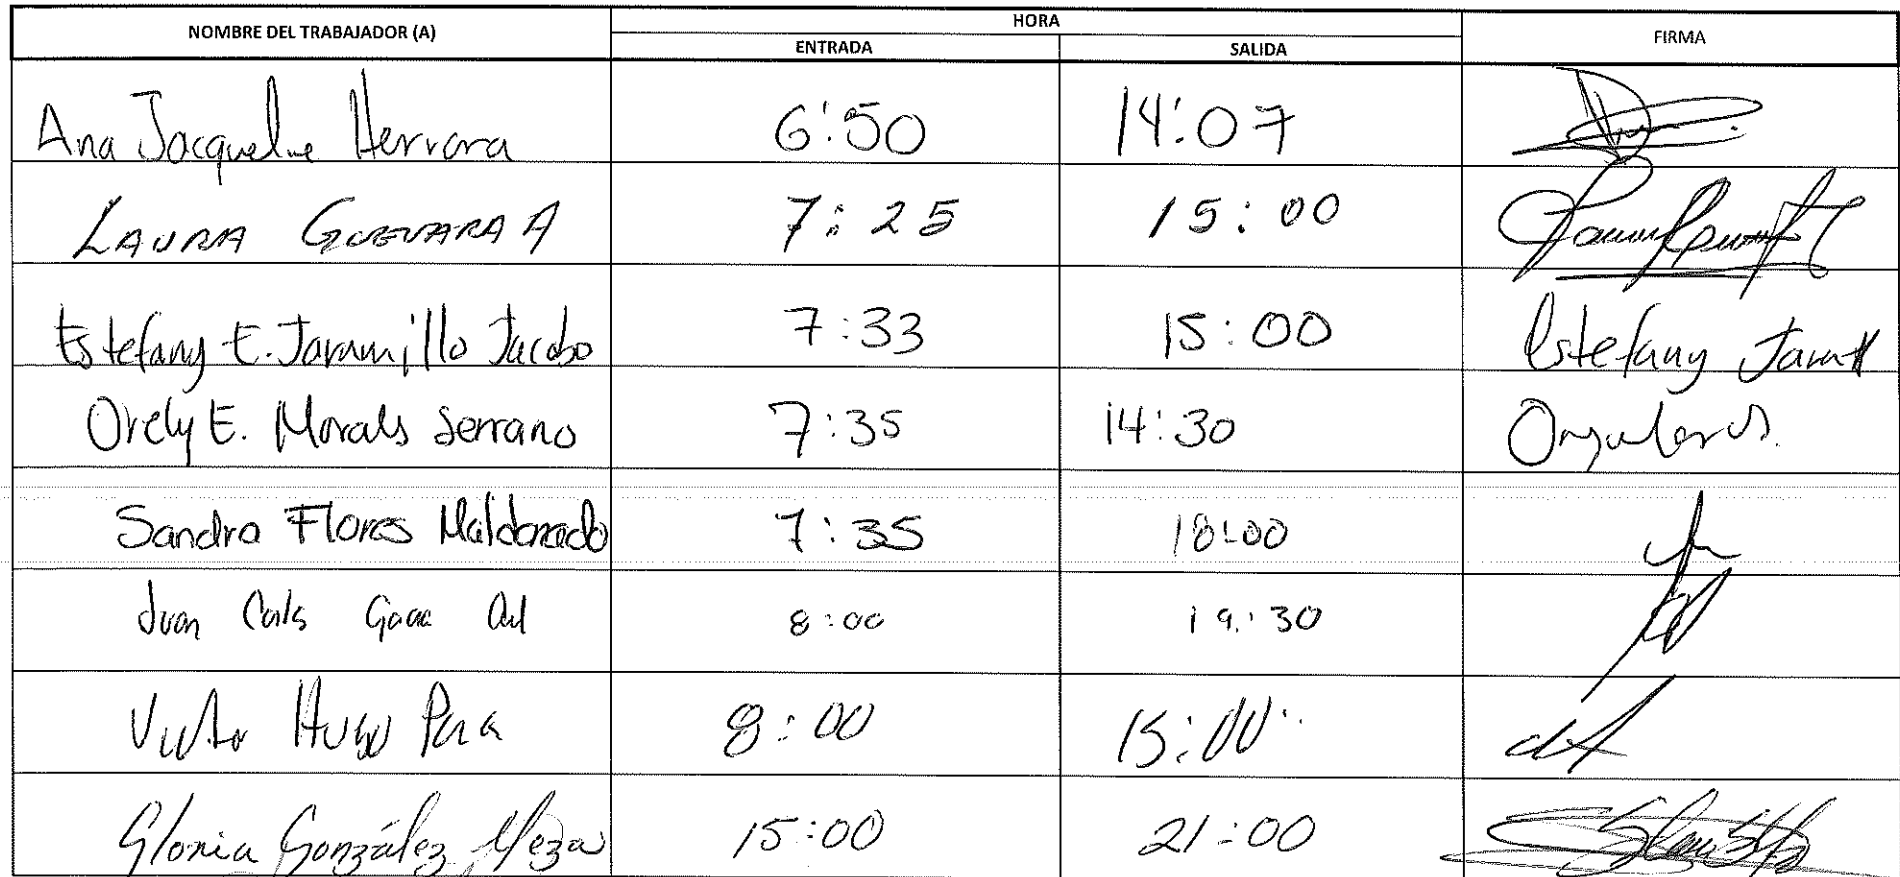 NOMBRE DEL TRABAJADOR (A) HORA FIRMA
ENTRADA SALIDA
Ana Jacqueline Herrera 6:50 14:07
LAURA GUEVARA A 7:25 15:00
Estefany E. Jaramillo Jacobo 7:33 15:00 Estefany Jaram
Orely E. Morals Serrano 7:35 14:30
Sandra Flores Maldonado 7:35 18:00
Juan Carls 8:00 19:30
Victor Hugo 8:00 15:00
Gloria González Meza 15:00 21:00